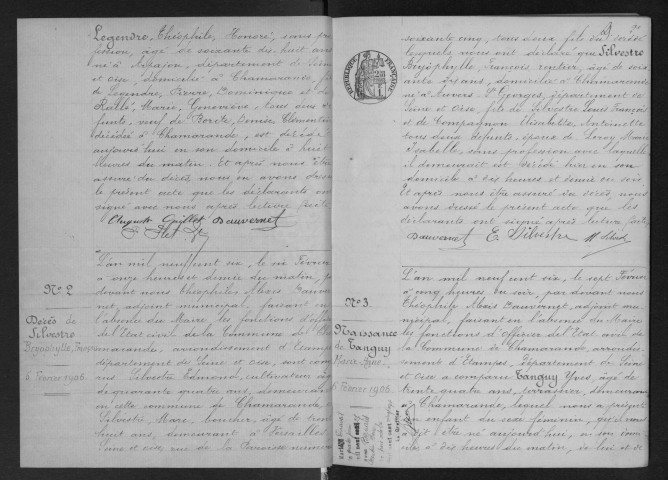 Legendre, Théophile, Honoré, sans pro
fession, âgé de soixante dix huit ans
né à Arpajon, département de Seine
et Oise, domicilié à Chamarande, fils
de Legendre, Pierre, Dominique et de
Marie, Geneviève, tous deux dé
funts, veuf de
décédée à Chamarande, est décédé
aujourd'hui en son domicile à huit
heures du matin. Et après nous être
assuré du décès, nous en avons dressé
le présent acte que les déclarants ont
signé avec nous après lecture faite
Auguste Guillet Dauvernet
N° 2
Décès de
Silvestre
François
6 Février 1906.
L'an mil neuf cent six, le six Février
à onze heures et demie du matin, par
devant nous Théophile, Alexis Dauver
net, adjoint municipal, faisant en
l'absence du Maire les fonctions d'officier
de l'Etat civil de la Commune de Cha
marande, arrondissement d'Etampes,
département de Seine et Oise, sont com
parus Silvestre Edmond, cultivateur âgé
de quarante quatre ans, demeurant
en cette commune de Chamarande,
Silvestre, Marc, boucher, âgé de trente
huit ans, demeurant à Versailles
Seine et Oise, rue de la Paroisse numéro
soixante cinq, tous deux fils du décédé
lesquels nous ont déclaré que Silvestre
François, rentier, âgé de soix
ante ans, domicilié à Chamarande
né à Auvers St Georges, département de
Seine et Oise, fils de Silvestre Louis François
et de Compagnon Elisabeth, Antoinette
tous deux défunts, époux de Leroy Marie
Isabelle, sans profession avec laquelle
il demeurait est décédé hier en son
domicile à dix heures et demie du soir
Et après nous être assuré du décès, nous
avons dressé le présent acte que les
déclarants ont signé après lecture faite,
Dauvernet E. Silvestre
N° 3
Naissance
de Tanguy
6 Février 1906.
L'an mil neuf cent six, le sept Février
à cinq heures du soir, par devant nous
Théophile Alexis Dauvernet, adjoint mu
nicipal, faisant en l'absence du Maire
les fonctions d'Officier de l'Etat civil de
la Commune de Chamarande, arrondis
sement d'Etampes, Département de Seine
et Oise a comparu Tanguy Yves, âgé de
trente quatre ans, terrassier, demeurant
à Chamarande, lequel nous a présenté
un enfant du sexe féminin, qu'il nous
a dit être né aujourd'hui, en son domi
cile à dix heures du matin, de lui et de